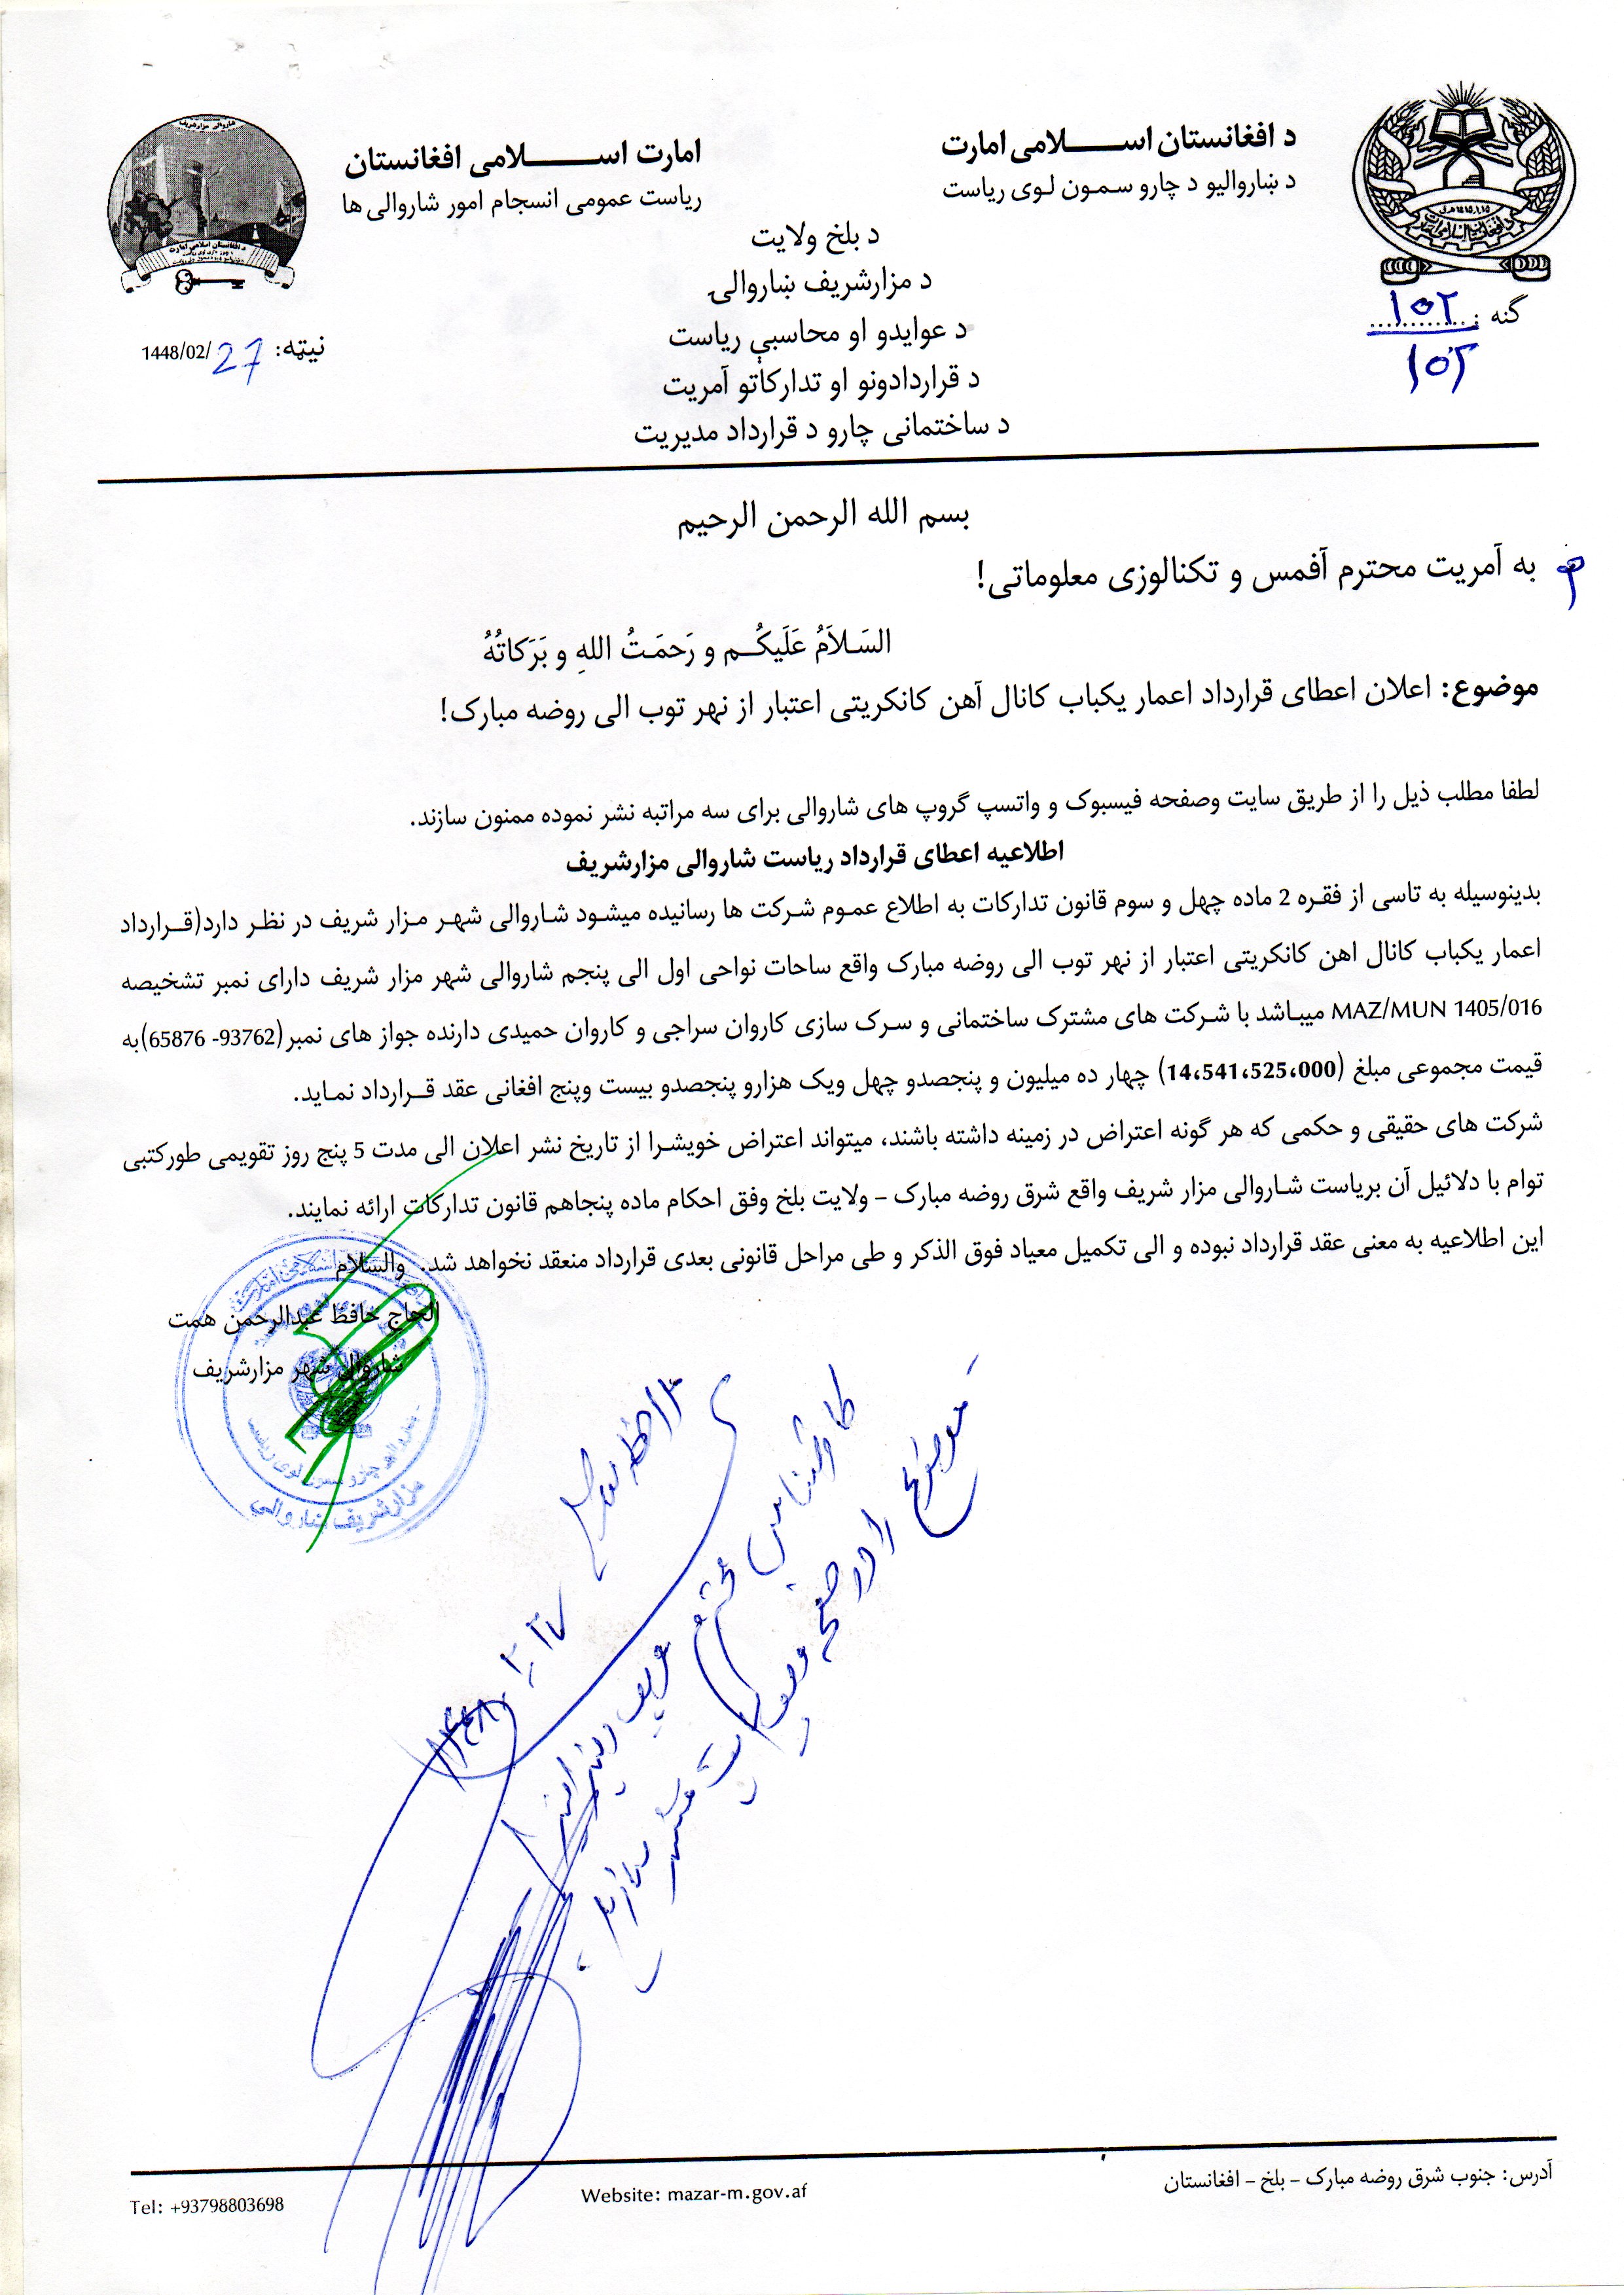 د افغانستان اسلامی امارت
د ښاروالیو د چارو سمون لوی ریاست
امارت اسلامی افغانستان
ریاست عمومی انسجام امور شاروالی ها
د بلخ ولایت
د مزارشریف ښاروالی
د عوایدو او محاسبې ریاست
د قراردادونو او تدارکاتو آمریت
د ساختمانی چارو د قرارداد مدیریت
گنه : ۱۰۲
۱۰۲
نیټه: 1448/02/27
بسم الله الرحمن الرحیم
به آمریت محترم آفمس و تکنالوزی معلوماتی!
السَلاَمُ عَلَیکُم و رَحمَتُ اللهِ و بَرَکاتُهُ
موضوع: اعلان اعطای قرارداد اعمار یکباب کانال آهن کانکریتی اعتبار از نهر توب الی روضه مبارک!
لطفا مطلب ذیل را از طریق سایت وصفحه فیسبوک و واتسپ گروپ های شاروالی برای سه مراتبه نشر نموده ممنون سازند.
اطلاعیه اعطای قرارداد ریاست شاروالی مزارشریف
بدینوسیله به تاسی از فقره 2 ماده چهل و سوم قانون تدارکات به اطلاع عموم شرکت ها رسانیده میشود شاروالی شهر مزار شریف در نظر دارد(قرارداد
اعمار یکباب کانال اهن کانکریتی اعتبار از نهر توب الی روضه مبارک واقع ساحات نواحی اول الی پنجم شاروالی شهر مزار شریف دارای نمبر تشخیصه
MAZ/MUN 1405/016 میباشد با شرکت های مشترک ساختمانی و سرک سازی کاروان سراجی و کاروان حمیدی دارنده جواز های نمبر(93762- 65876)به
قیمت مجموعی مبلغ (14،541،525،000) چهار ده میلیون و پنجصدو چهل ویک هزارو پنجصدو بیست وپنج افغانی عقد قرارداد نماید.
شرکت های حقیقی و حکمی که هر گونه اعتراض در زمینه داشته باشند، میتواند اعتراض خویشرا از تاریخ نشر اعلان الی مدت 5 پنج روز تقویمی طورکتبی
توام با دلائیل آن بریاست شاروالی مزار شریف واقع شرق روضه مبارک – ولایت بلخ وفق احکام ماده پنجاهم قانون تدارکات ارائه نمایند.
این اطلاعیه به معنی عقد قرارداد نبوده و الی تکمیل معیاد فوق الذکر و طی مراحل قانونی بعدی قرارداد منعقد نخواهد شد. والسلام
الحاج حافظ عبدالرحمن همت
شاروال شهر مزارشریف
مزارشریف ښاروالي
ملاحظه شد
موضوع را در صفحه
آدرس: جنوب شرق روضه مبارک – بلخ – افغانستان
Website: mazar-m.gov.af
Tel: +93798803698